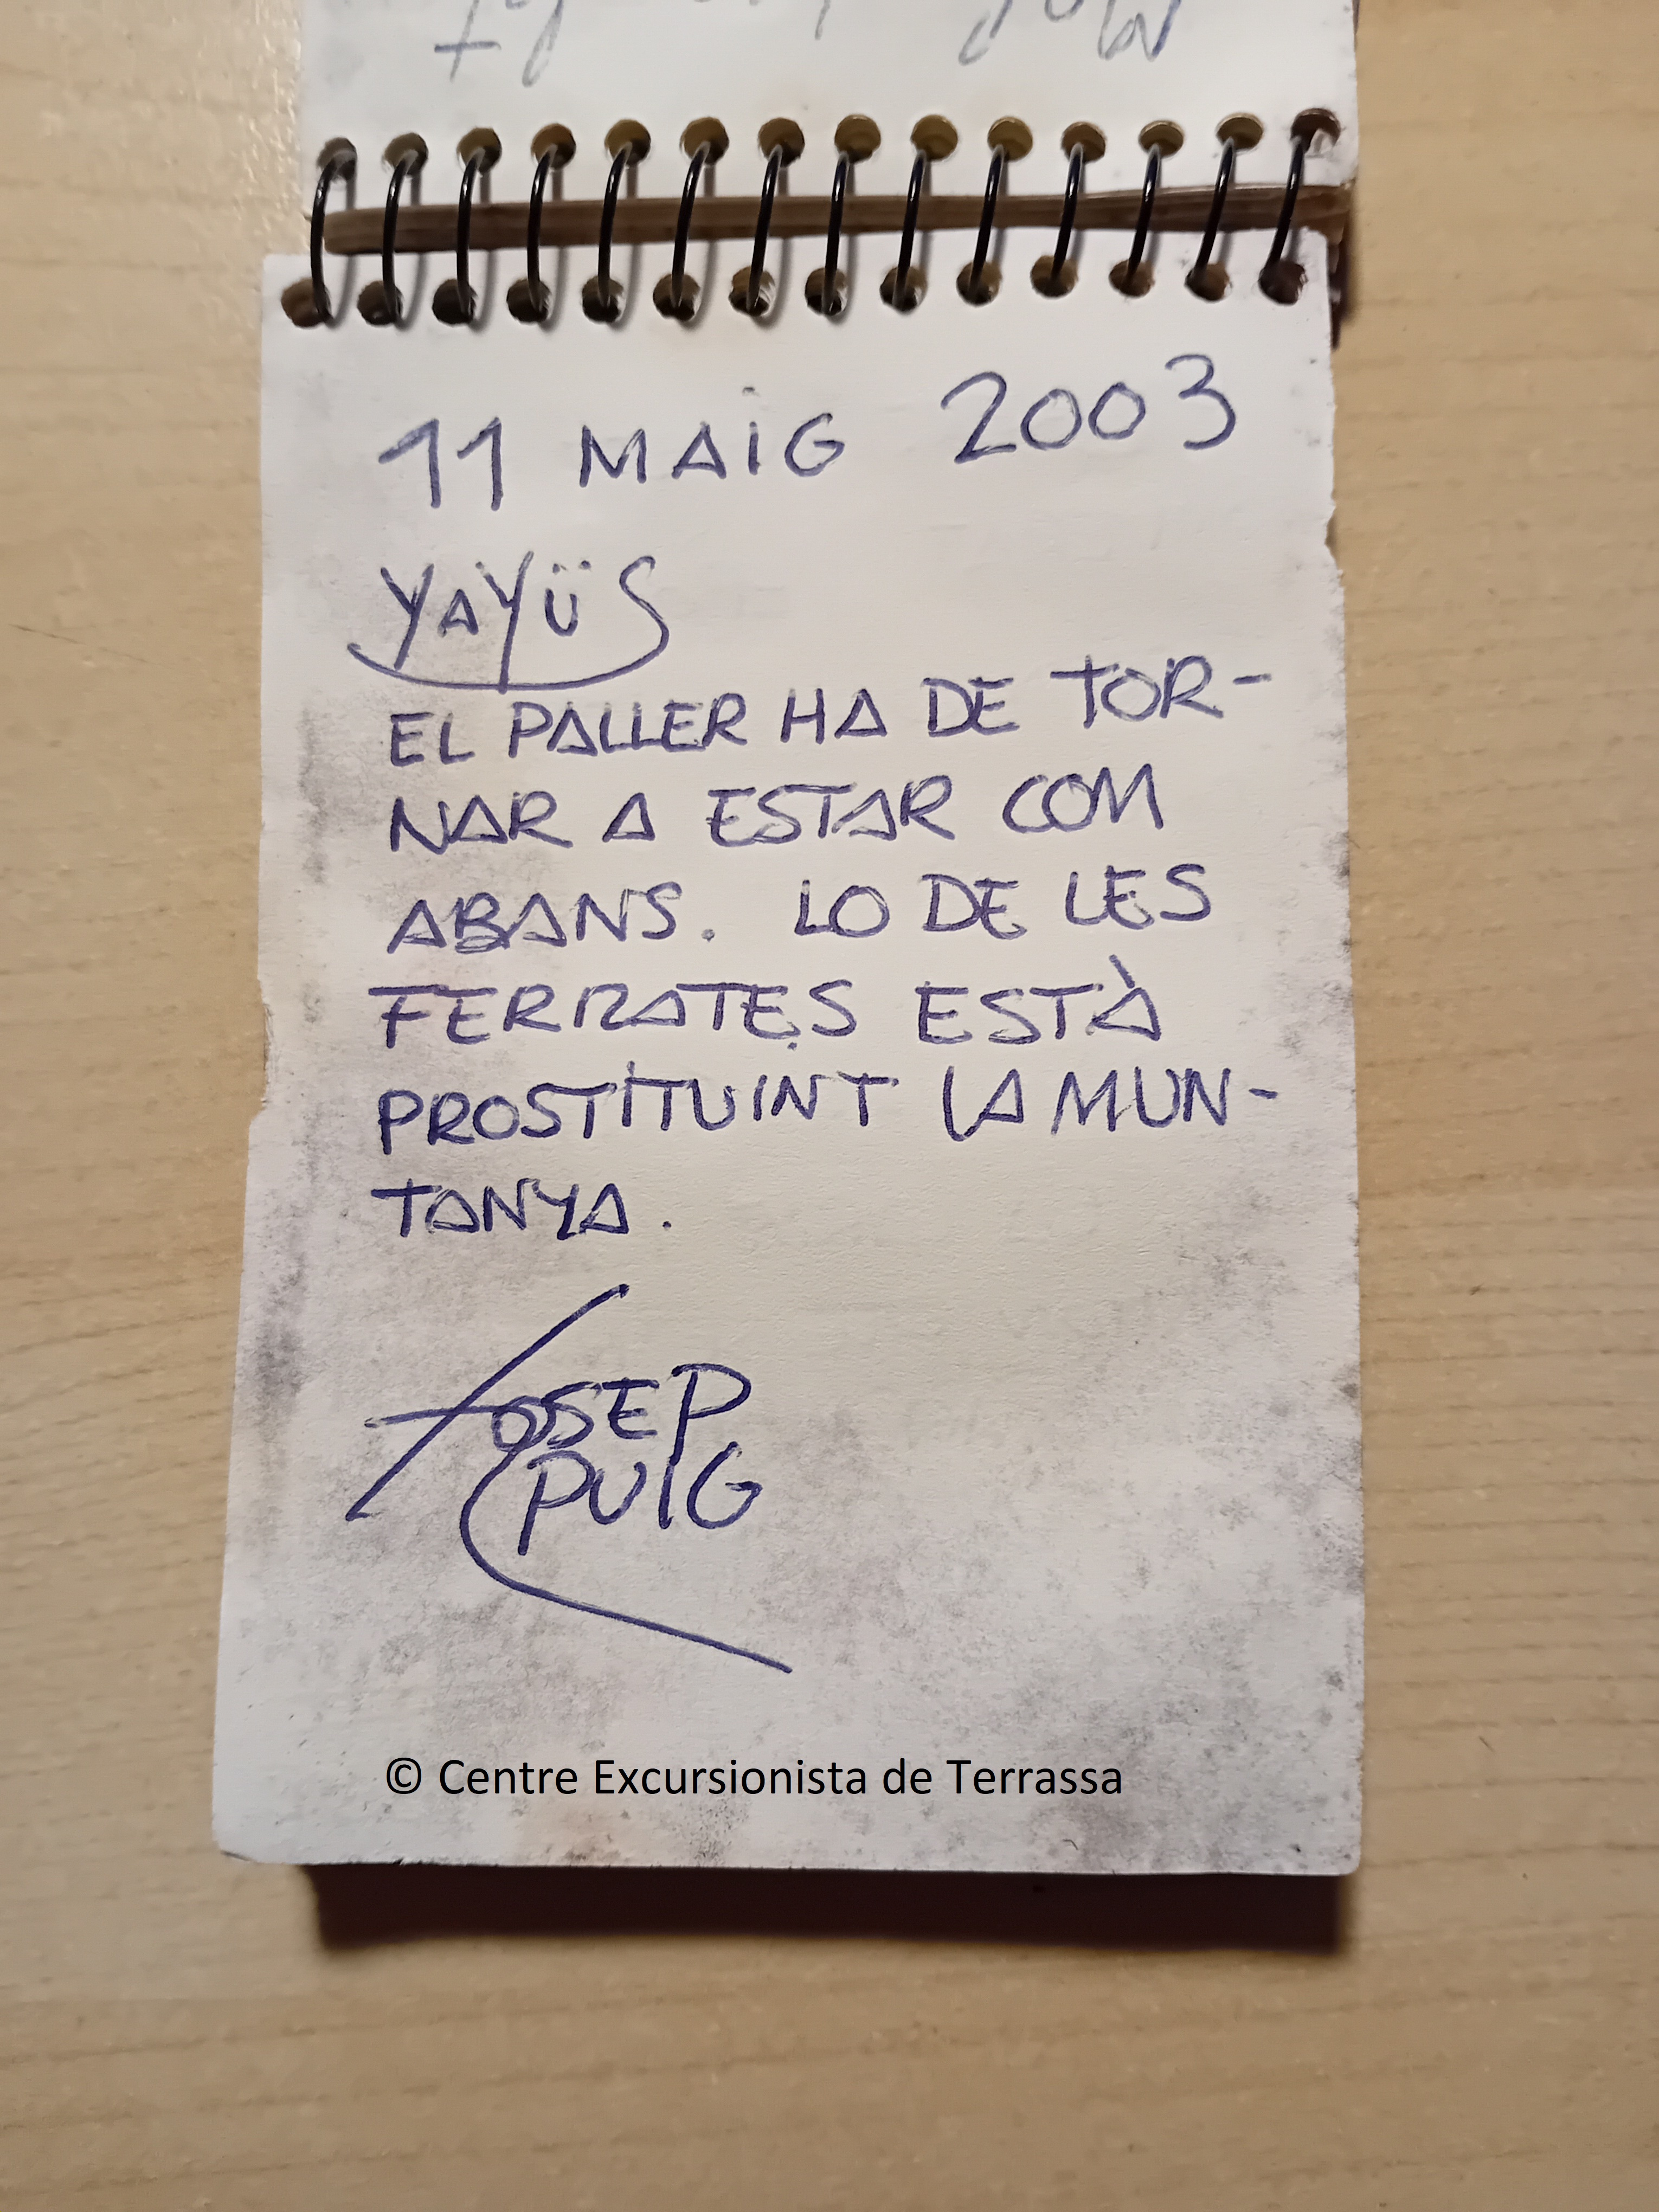 11 MAIG 2003
YAYÜS
EL PALLER HA DE TOR-
NAR A ESTAR COM
ABANS. LO DE LES
FERRATES ESTÀ
PROSTITUINT LA MUN-
TANYA.
JOSEP
PUIG
© Centre Excursionista de Terrassa